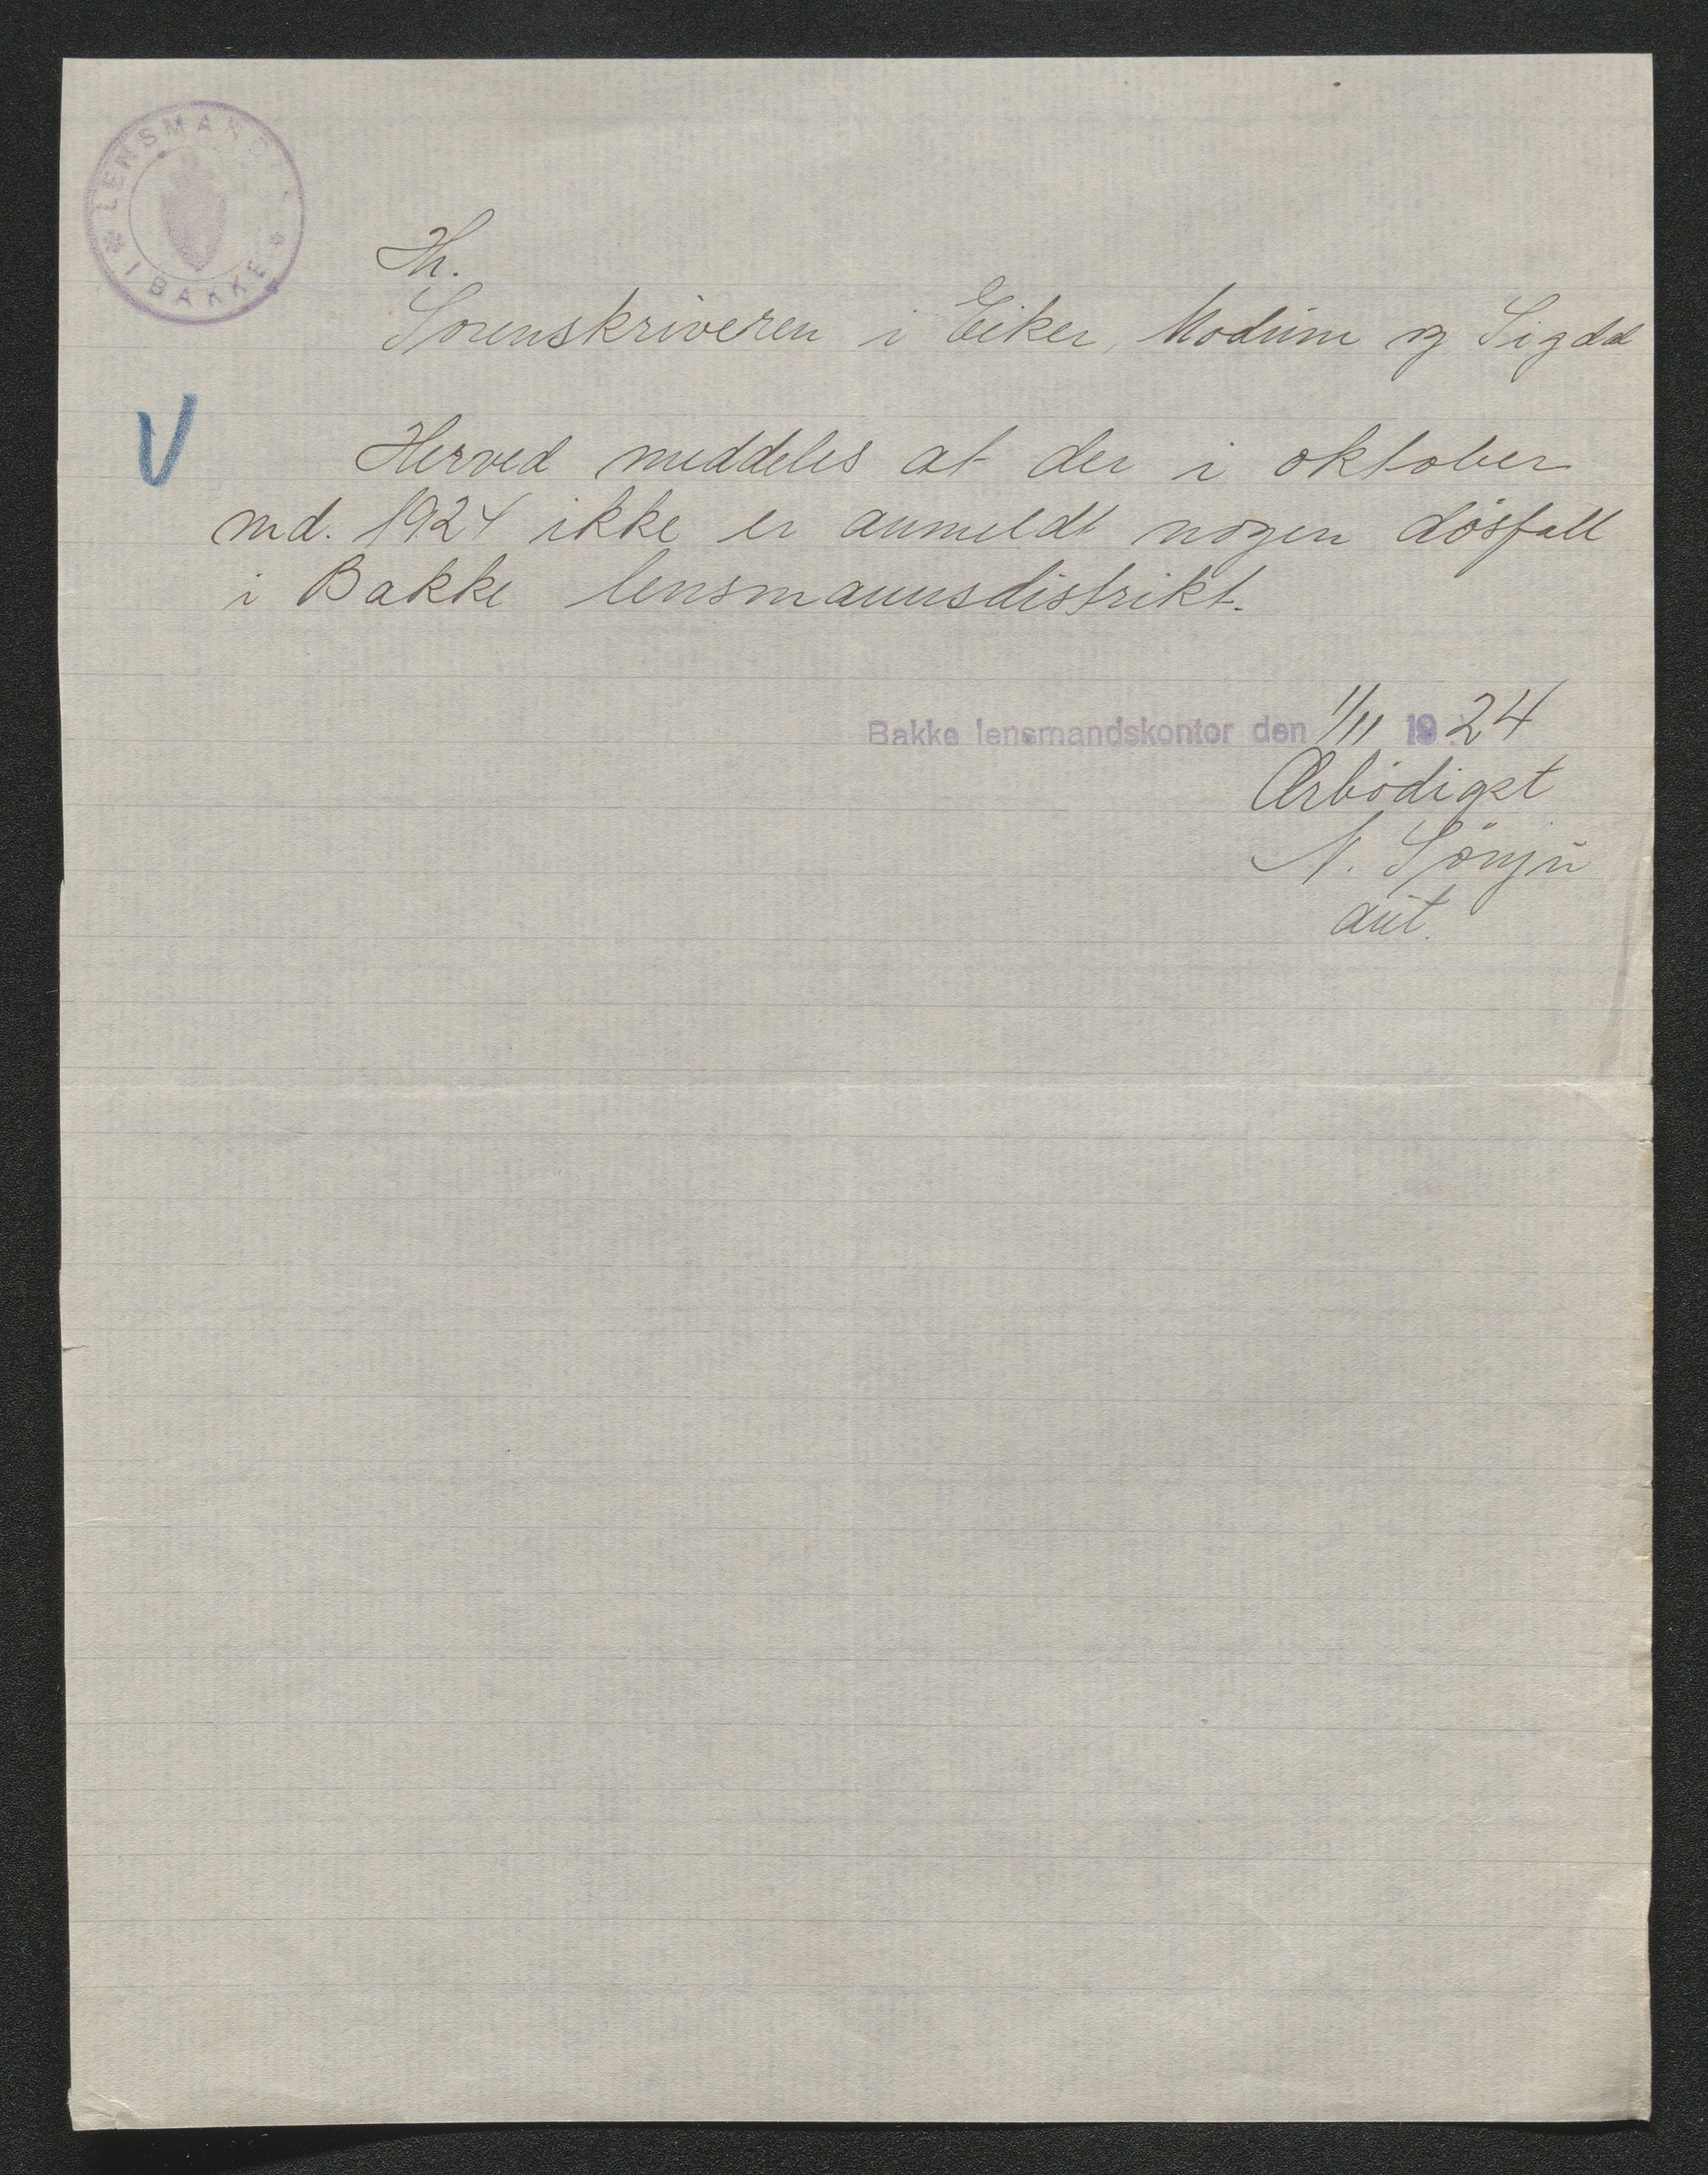 LENSMAND
I BAKKE
Hr.
Sorenskriveren i Eiker, Modum og Sigdal
V
Herved meddeles at der i oktober
md. 1924 ikke er anmeldt nogen dösfall
i Bakke lensmannsdistrikt.
Bakke lensmandskontor den 1/11 1924
Ærbödigst
N. Sönju
aut.